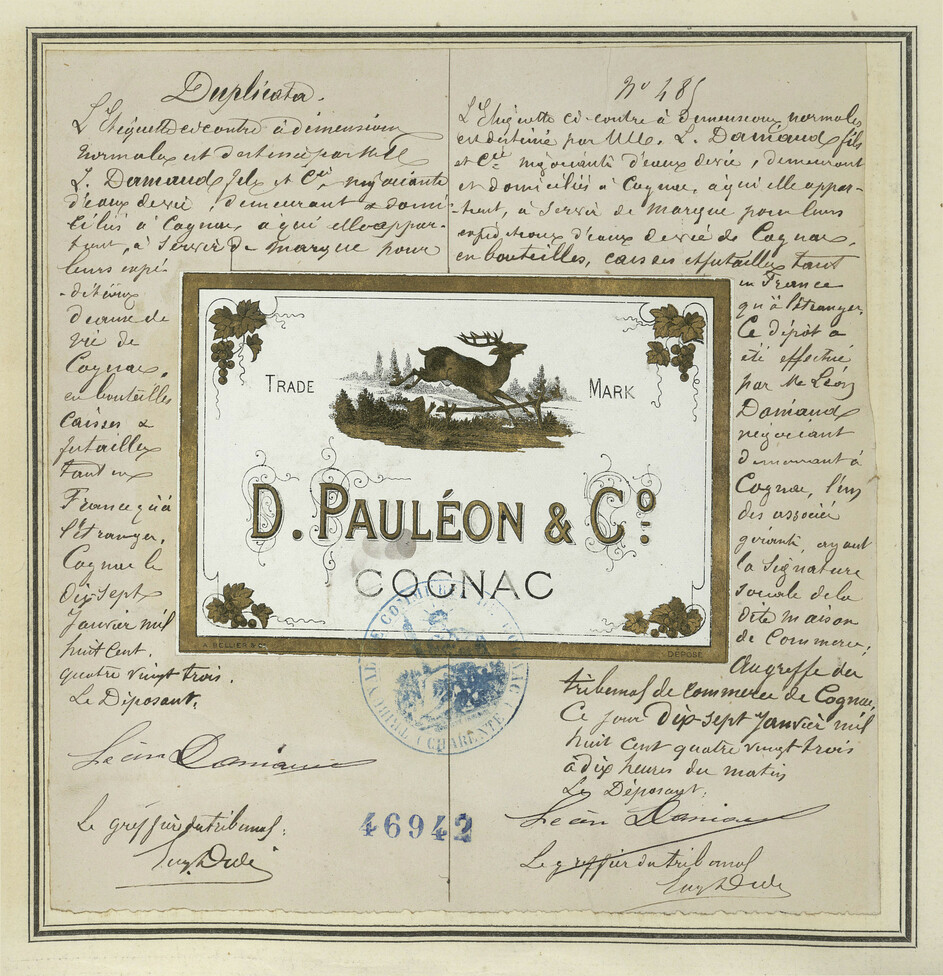 Duplicata.
L'Etiquette ci contre à dimensions
normales est destinée par MM
L. Damiaud fils et Cie, négociants
d'eaux de vie, demeurant & domi-
ciliés à Cognac, à qui elle appar-
tient, à servir de marque pour
leurs expé-
-ditions
d'eaux de
vie de
Cognac,
en bouteilles
caisses &
futailles
tant en
France qu'à
l'étranger.
Cognac le
dix-sept
Janvier mil
huit cent
quatre vingt trois.
Le Déposant,
Léon Damiaud
Le gréffier du tribunal:
No 485
L'Etiquette ci-contre à dimensions normales
est destinée par MM. L. Damiaud fils
et Cie négociants d'eaux de vie, demeurant
et domiciliés à Cognac, à qui elle appar-
-tient, à servir de marque pour leurs
expéditions d'eaux de vie de Cognac,
en bouteilles, caisses et futailles tant
en France
qu'à l'étranger.
Ce dépôt a
été effectué
par Mr Léon
Damiaud
négociant
demeurant à
Cognac, l'un
des associés
gérants, ayant
la signature
sociale de la
dite maison
de Commerce,
Au greffe du
tribunal de commerce de Cognac,
Ce jour dix-sept Janvier mil
huit cent quatre vingt trois
à dix heures du matin
Le Déposant,
Léon Damiaud
Le greffier du tribunal
TRADE MARK
D. PAULÉON & Co
COGNAC
A. BELLIER & Co
DÉPOSÉ
TRIBUNAL DE COMMERCE DE COGNAC
(CHARENTE)
46942